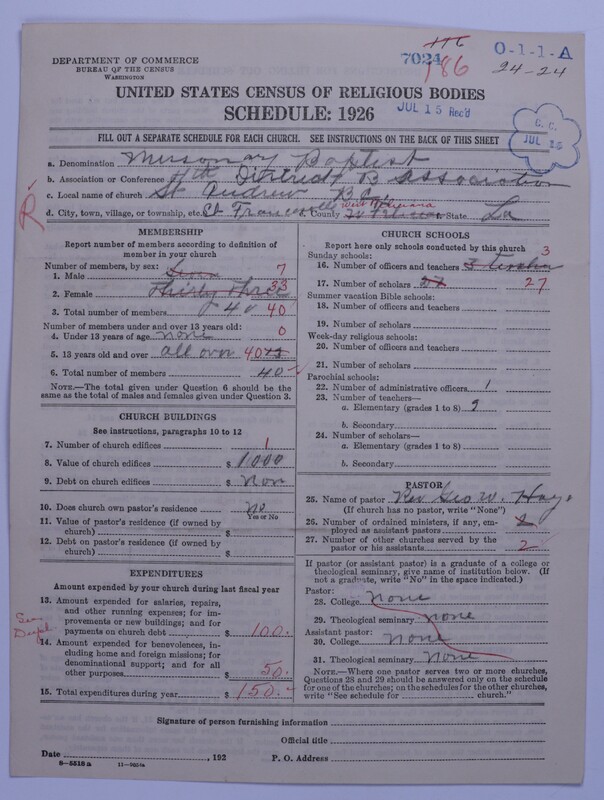 DEPARTMENT OF COMMERCE
BUREAU OF THE CENSUS
WASHINGTON
7024
116
186
O-1-1-A
24-24
UNITED STATES CENSUS OF RELIGIOUS BODIES
SCHEDULE: 1926
JUL 15 Rec'd
C. C.
JUL 16
FILL OUT A SEPARATE SCHEDULE FOR EACH CHURCH. SEE INSTRUCTIONS ON THE BACK OF THIS SHEET
a. Denomination Missonary Baptist
b. Association or Conference 4th District B Association
c. Local name of church St Andrew B.C.
R
d. City, town, village, or township, etc. St Francisville County West Feliciana State La
MEMBERSHIP
Report number of members according to definition of
member in your church
Number of members, by sex:
1. Male Seven 7
2. Female Thirty three 33
3. Total number of members 40 40
Number of members under and over 13 years old:
4. Under 13 years of age none 0
5. 13 years old and over all over 40
6. Total number of members 40
NOTE.—The total given under Question 6 should be
the same as the total of males and females given under Question 3.
CHURCH BUILDINGS
See instructions, paragraphs 10 to 12
7. Number of church edifices 1
8. Value of church edifices $ 1000
9. Debt on church edifices $ Non
10. Does church own pastor's residence No
Yes or No
11. Value of pastor's residence (if owned by
church) $
12. Debt on pastor's residence (if owned by
church) $
EXPENDITURES
Amount expended by your church during last fiscal year
13. Amount expended for salaries, repairs,
and other running expenses; for im-
provements or new buildings; and for
payments on church debt $ 100.
14. Amount expended for benevolences, in-
cluding home and foreign missions; for
denominational support; and for all
other purposes $ 50.
15. Total expenditures during year $ 150.
CHURCH SCHOOLS
Report here only schools conducted by this church
Sunday schools:
16. Number of officers and teachers 3 3
17. Number of scholars 27 27
Summer vacation Bible schools:
18. Number of officers and teachers
19. Number of scholars
Week-day religious schools:
20. Number of officers and teachers
21. Number of scholars
Parochial schools:
22. Number of administrative officers 1
23. Number of teachers—
a. Elementary (grades 1 to 8) 9
b. Secondary
24. Number of scholars—
a. Elementary (grades 1 to 8)
b. Secondary
PASTOR
25. Name of pastor Rev Geo W. Hays
(If church has no pastor, write "None")
26. Number of ordained ministers, if any, em-
ployed as assistant pastors
27. Number of other churches served by the
pastor or his assistants 2
If pastor (or assistant pastor) is a graduate of a college or
theological seminary, give name of institution below. (If
not a graduate, write "No" in the space indicated.)
Pastor:
28. College none
29. Theological seminary none
Assistant pastor:
30. College none
31. Theological seminary none
NOTE.—Where one pastor serves two or more churches,
Questions 28 and 29 should be answered only on the schedule
for one of the churches; on the schedules for the other churches,
write "See schedule for church."
Signature of person furnishing information
Official title
Date , 192 P. O. Address
8-5518 a